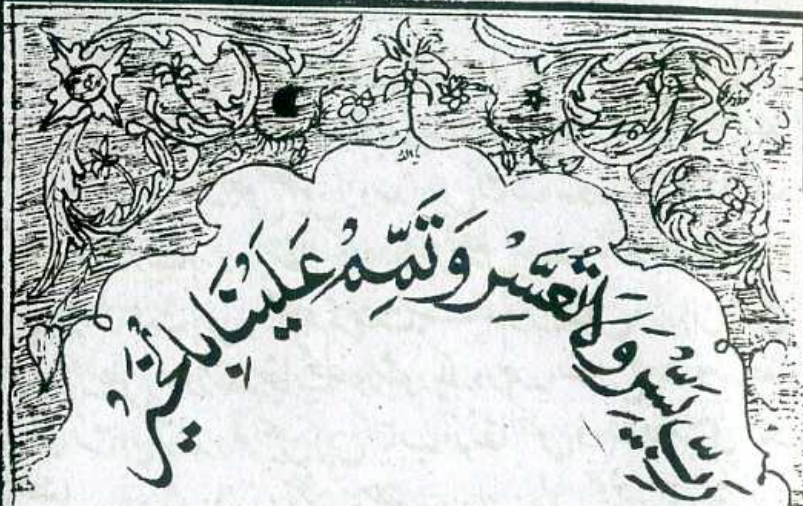 یا اللہ
رَبِّ يَسِّرْ وَلَا تُعَسِّرْ وَتَمِّمْ عَلَيْنَا بِالْخَيْرِ